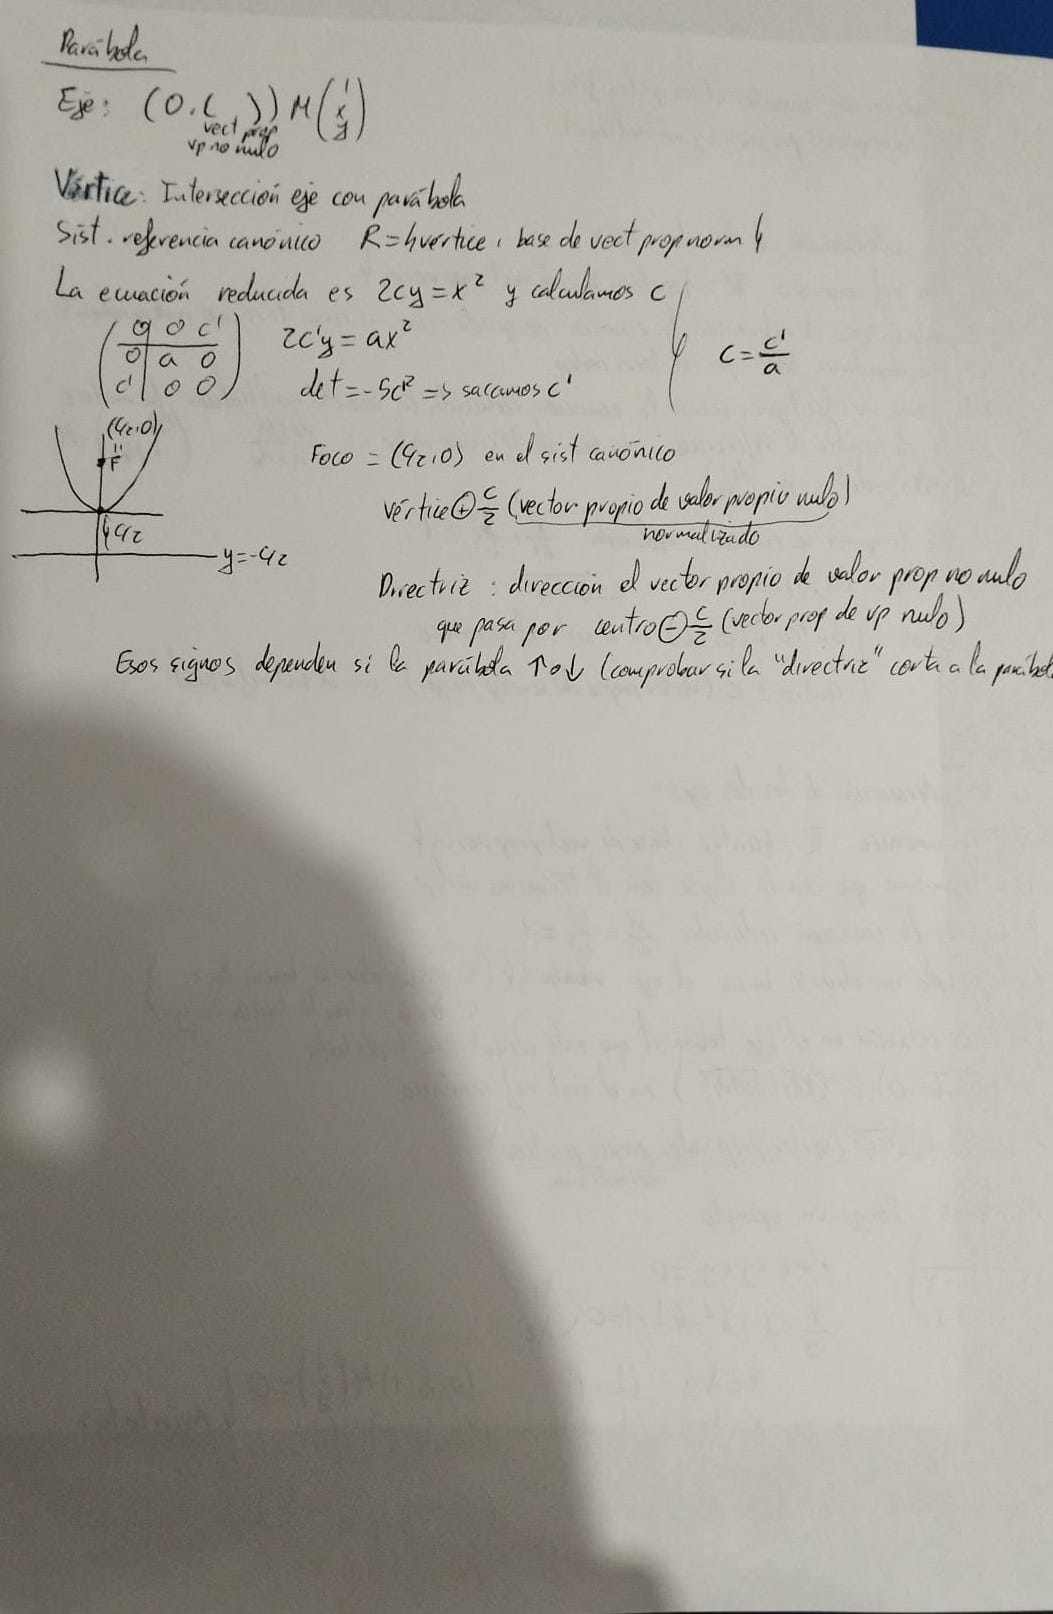 Parábola
Eje: (0,( )) M (1 x y)
vect prop
vp no nulo
Vértice: Intersección eje con parábola
Sist. referencia canónico R={vértice, base de vect prop norm}
La ecuación reducida es 2cy = x² y calculamos c
0 0 c' 2c'y = ax²
0 a 0 c = c'/a
c' 0 0 det = -5c'² => sacamos c'
(c/2,0)
F
Foco = (c/2,0) en el sist canónico
vértice ⊕ c/2 (vector propio de valor propio nulo)
normalizado
c/2
y=-c/2
Directriz: dirección el vector propio de valor prop no nulo
que pasa por centro ⊖ c/2 (vector prop de vp nulo)
Esos signos dependen si la parábola ↑ o ↓ (comprobar si la "directriz" corta a la parábol